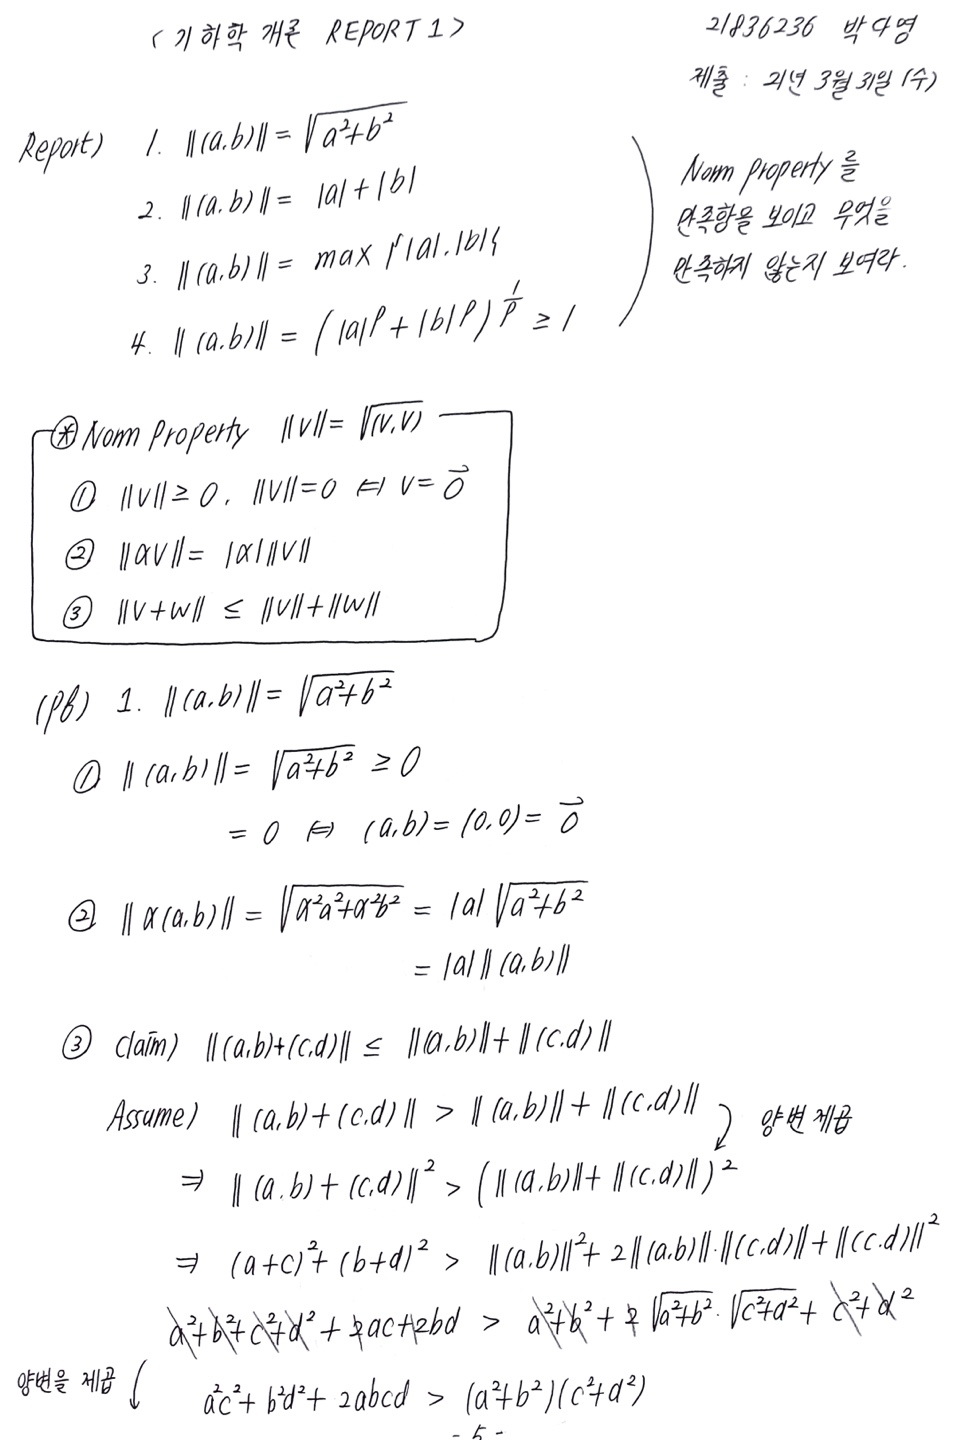 < 기하학 개론 REPORT 1 >
21836236 박다영
제출 : 21년 3월 31일 (수)
Report) 1. ||(a,b)|| = √(a²+b²)
2. ||(a,b)|| = |a|+|b|
3. ||(a,b)|| = max {|a|,|b|}
4. ||(a,b)|| = (|a|^p + |b|^p)^(1/p) ≥ 1
Norm Property를
만족함을 보이고 무엇을
만족하지 않는지 보여라.
⊛ Norm Property ||v|| = √(v,v)
① ||v|| ≥ 0, ||v||=0 ⇔ v=0⃗
② ||αv|| = |α| ||v||
③ ||v+w|| ≤ ||v||+||w||
(pf) 1. ||(a,b)|| = √(a²+b²)
① ||(a,b)|| = √(a²+b²) ≥ 0
= 0 ⇔ (a,b) = (0,0) = 0⃗
② ||α(a,b)|| = √(α²a²+α²b²) = |a| √(a²+b²)
= |a| ||(a,b)||
③ claim) ||(a,b)+(c,d)|| ≤ ||(a,b)||+||(c,d)||
Assume) ||(a,b)+(c,d)|| > ||(a,b)||+||(c,d)||
양변 제곱
⇒ ||(a,b)+(c,d)||² > (||(a,b)||+||(c,d)||)²
⇒ (a+c)²+(b+d)² > ||(a,b)||²+2||(a,b)||·||(c,d)||+||(c,d)||²
a²+b²+c²+d²+2ac+2bd > a²+b²+2√(a²+b²)·√(c²+d²)+c²+d²
양변을 제곱
a²c²+b²d²+2abcd > (a²+b²)(c²+d²)
- 5 -